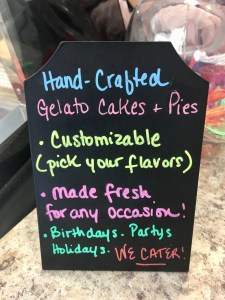 Hand-Crafted
Gelato Cakes + Pies
• Customizable
(pick your flavors)
• Made fresh
for any occasion!
• Birthdays. Partys
Holidays. WE CATER!